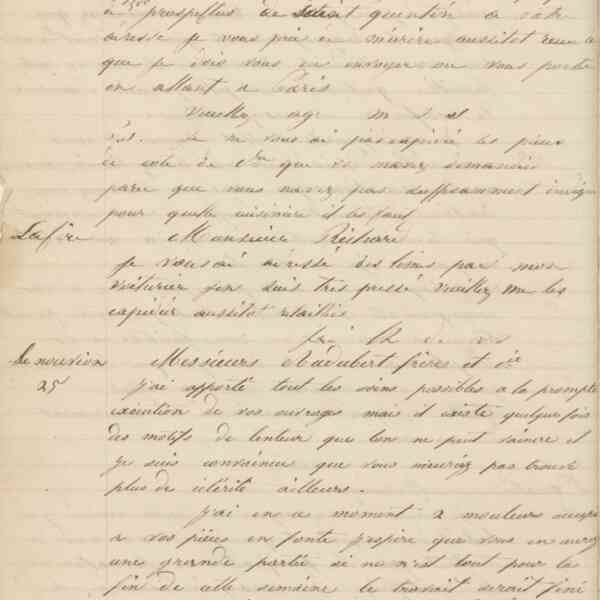 prospectus de Saint quentin a votre
adresse je vous prie de m'écrire aussitot
que je dois vous les envoyer ou vous
en allant a Paris
Veuillez agr m s et
je ne vous ai pas expédié les pieces
de cote de que vs mavez demandées
parce que vous navez pas suffisamment
pour quelle cuisiniere il les faut
Lafere Monsieur Richard
Je vous ai adressé des limes par mon
voiturier jen suis tres pressé veuillez me les
expédier aussitot retaillées
de vs
Le nouvion Messieurs frères et Cie
25 J'ai apporté tout les soins possibles a la prompte
exécution de vos ouvrages mais il existe quelque fois
des motifs de lenteur que lon ne peut vaincre et
je suis convaincu que vous nauriez pas trouvé
plus de célérité ailleurs.
J'ai en ce moment 2 mouleurs
a vos pièces en fonte j'espire que vous en aurez
une grande partie si ce n'est tout pour la
fin de cette semaine le travail serait fini